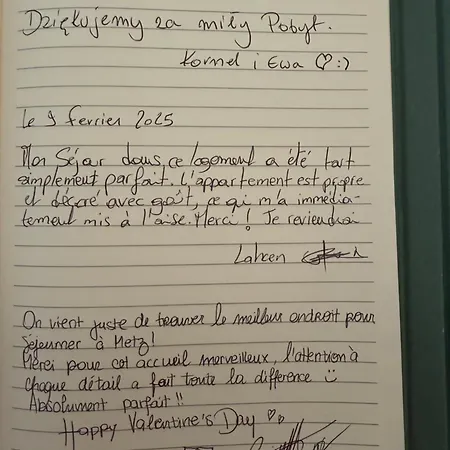 Dziękujemy za miły Pobyt.
Kornel i Ewa ♡:)
le 9 fevrier 2025
Mon Séjour dans ce logement a été tout
simplement parfait. L'appartement est propre
et décoré avec goût, ce qui m'a immédia-
tement mis à l'aise. Merci ! Je reviendrai
Lahcen
On vient juste de trouver le meilleur endroit pour
Sejourner à Metz !
Merci pour cet accueil merveilleux, l'attention à
chaque détail a fait toute la difference
Absolument parfait !!
Happy Valentine's Day ♡♡